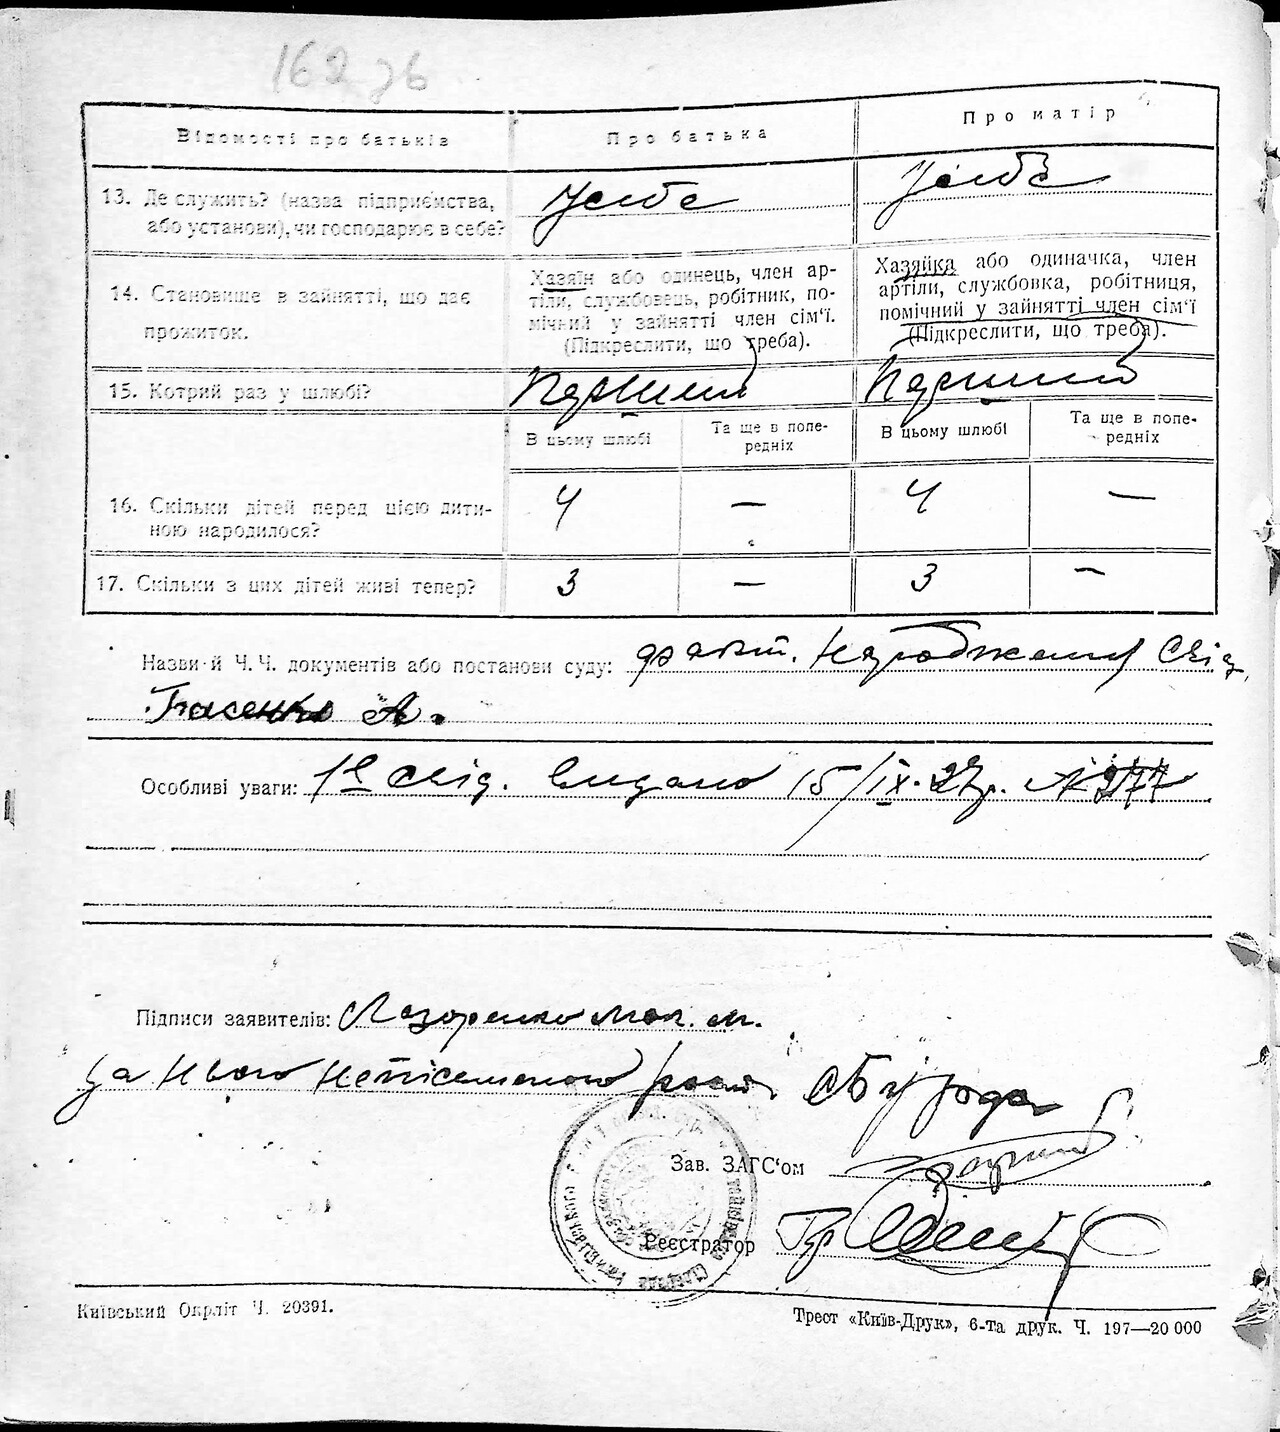 162 зв
Відомості про батьків
Про батька
Про матір
13. Де служить? (назва підприємства,
або установи), чи господарює в себе?
У себе
У себе
14. Становище в зайнятті, що дає
прожиток.
Хазяїн або одинець, член ар-
тіли, службовець, робітник, по-
мічний у зайнятті член сім'ї.
(Підкреслити, що треба).
Хазяйка або одиначка, член
артіли, службовка, робітниця,
помічний у зайнятті член сім'ї
(Підкреслити, що треба).
15. Котрий раз у шлюбі?
Перший
Перший
В цьому шлюбі
Та ще в попе-
редніх
В цьому шлюбі
Та ще в попе-
редніх
16. Скільки дітей перед цією дити-
ною народилося?
4 — 4 —
17. Скільки з цих дітей живі тепер?
3 — 3 —
Назви й Ч.Ч. документів або постанови суду: факт. народження свід.
А.
Особливі уваги: 1е свід. видано 15/IX-27р. № 977
Підписи заявителів: Лазоренко
за нього неписьменного
Зав. ЗАГС'ом
Реєстратор
Київський Окрліт Ч. 20391.
Трест «Київ-Друк», 6-та друк. Ч. 197—20 000